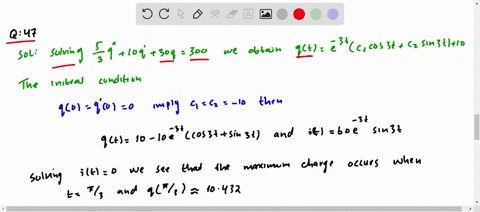 Q:47
Sol: Solving 5/3 q'' + 10q' + 30q = 300 we obtain q(t) = e^-3t (c₁ cos3t + c₂ sin3t) + 10
The initial condition
q(0) = q'(0) = 0 imply c₁ = c₂ = -10 then
q(t) = 10 - 10e^-3t (cos3t + sin3t) and i(t) = 60e^-3t sin3t
Solving i(t) = 0 we see that the maximum charge occurs when
t = π/3 and q(π/3) ≈ 10.432